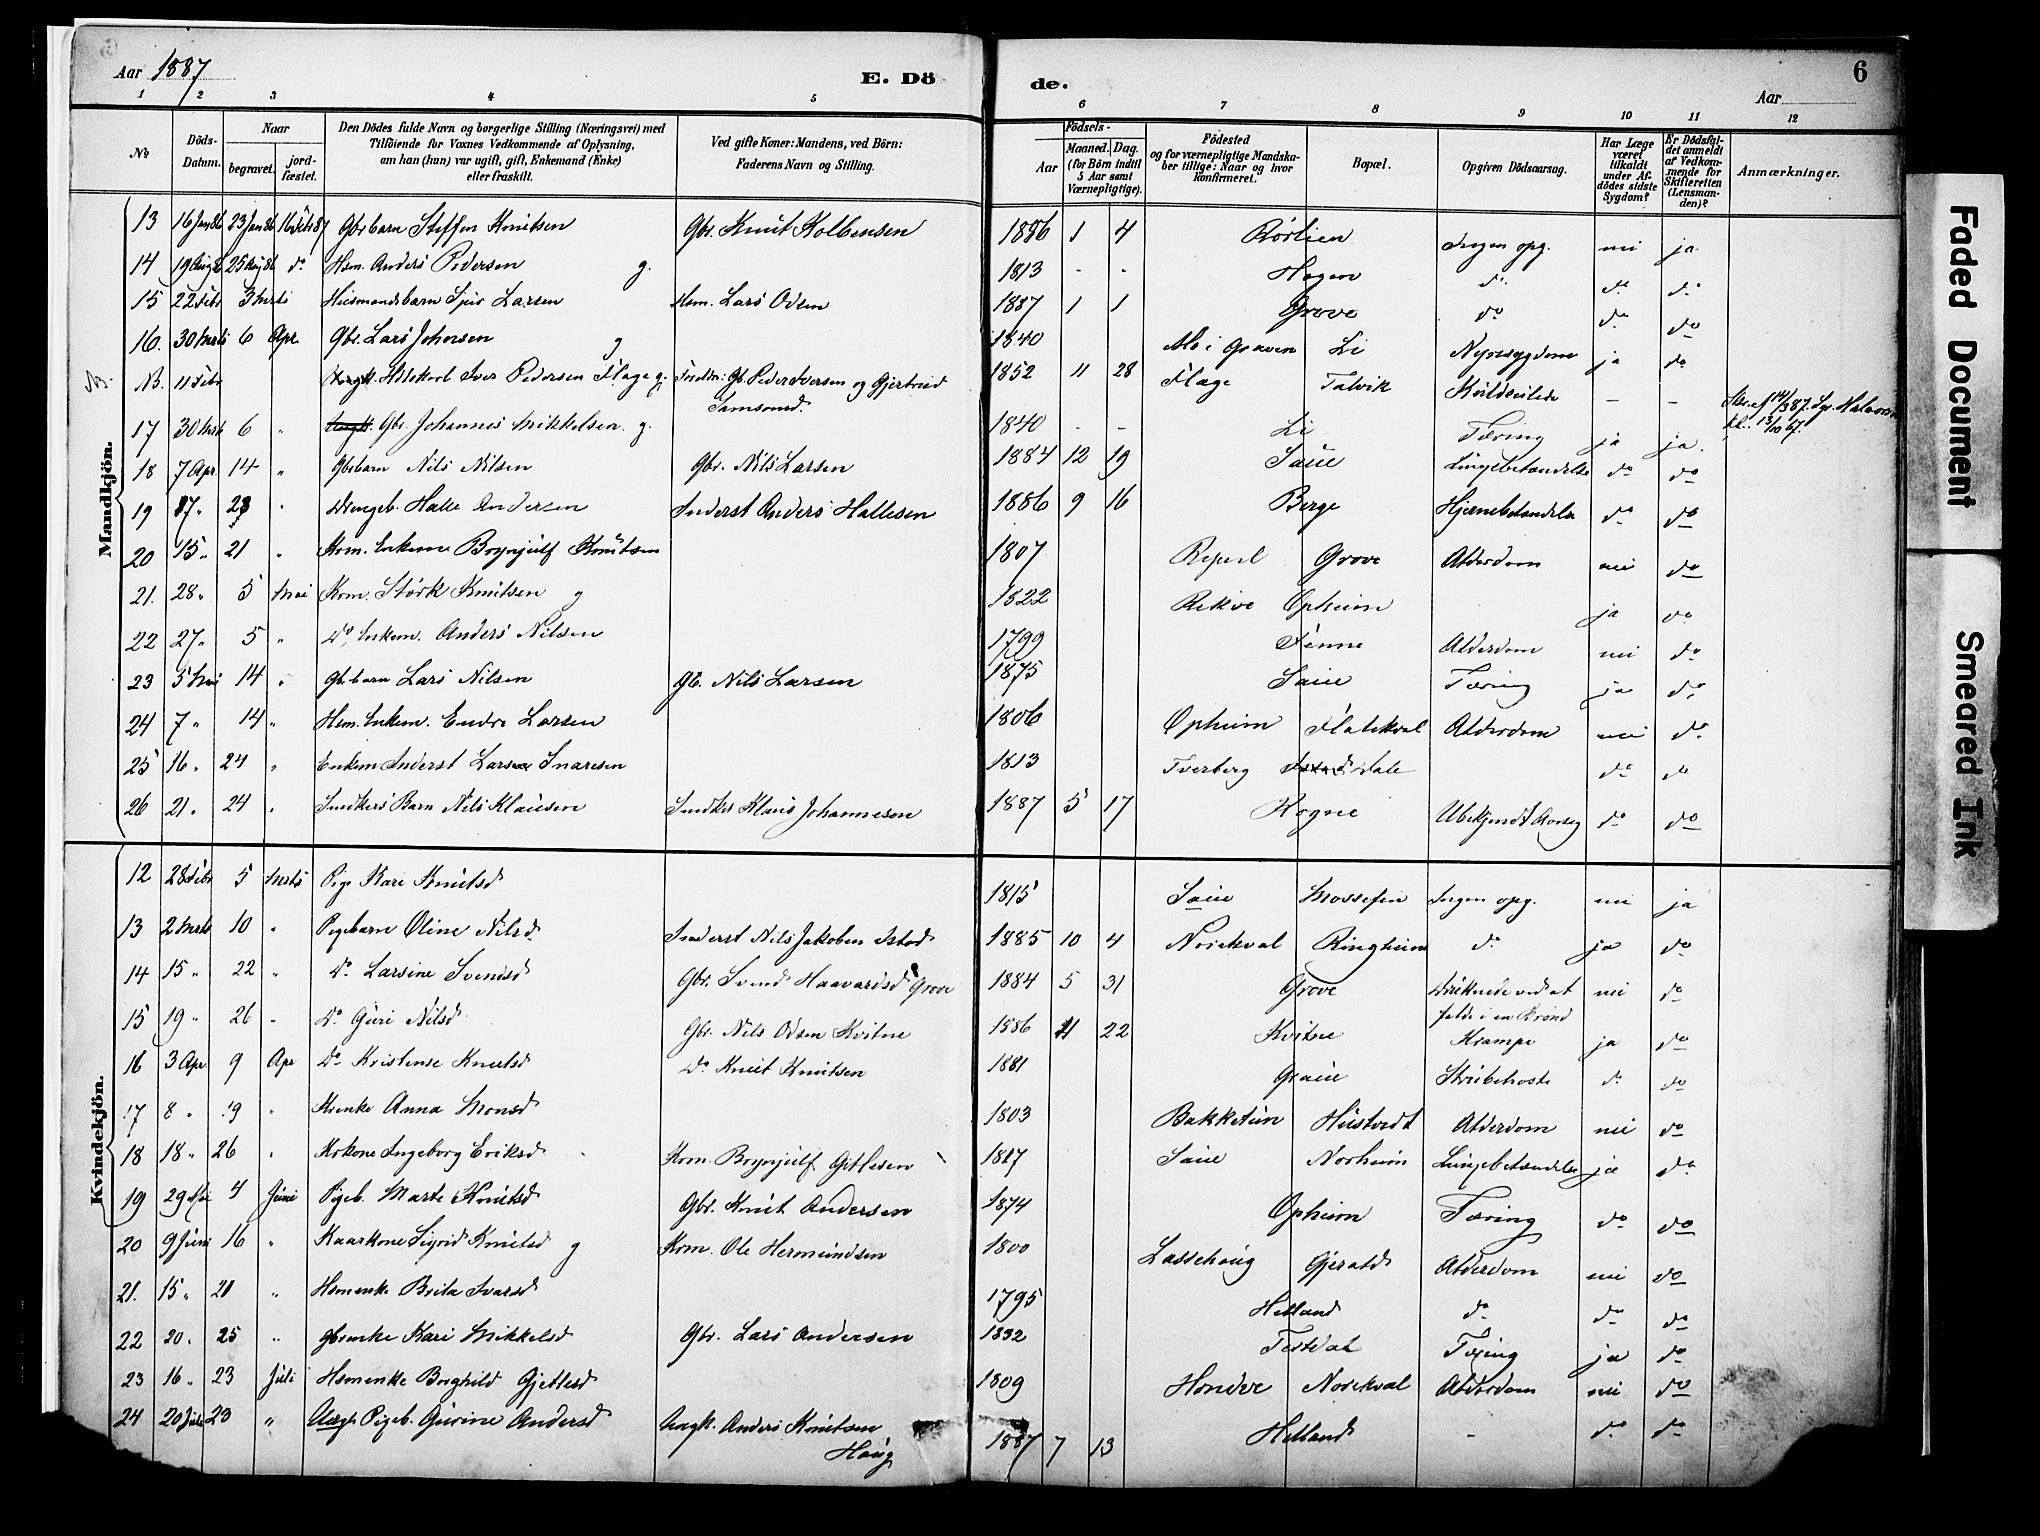 Aar 1887
E. Dö
de.
Aar
6
1 2 3 4 5 6 7 8 9 10 11 12
No
Döds-Datum.
Naar
begravet.
jord-fæstet.
Den Dödes fulde Navn og borgerlige Stilling (Næringsvei) med
Tilföiende for Voxnes Vedkommende af Oplysning,
om han (hun) var ugift, gift, Enkemand (Enke)
eller fraskilt.
Ved gifte Koner: Mandens, ved Börn:
Faderens Navn og Stilling.
Födsels-
Aar
Maaned. Dag.
(for Börn indtil
5 Aar samt
Værnepligtige).
Födested
og for værnepligtige Mandska-
ber tillige: Naar og hvor
konfirmeret.
Bopæl.
Opgiven Dödsaarsag.
Har Læge
været
tilkaldt
under Af-
dödes sidste
Sygdom?
Er Dödsfal-
det anmeldt
af Vedkom-
mende for
Skifteretten
(Lensman-
den)?
Anmærkninger.
Mandkjön.
13 16 Jan 86 23 Jan 86 16 Febr 87 Gbrbarn Steffen Knutsen Gbr. Knut Kolbensen 1886 1 4 Rørlien Ingen opg. nei ja
14 19 Aug 86 25 Aug 86 do Hsm. Anders Pedersen g. 1813 - - Hagen do do do
15 22 Febr 3 Mrts Husmandsbarn Sjur Larsen Hsm. Lars Odsen 1887 1 1 Grove do do do
16. 30 Mrts 6 Apr. Gbr. Lars Johnsen g 1840 i Graven Li Nyresygdom ja do
N. N. 11 Febr Iver Pedersen Flage g. Foreldre: Gb. Peder Iversen og Gjertrud Samsonsd. 1852 11 28 Flage Talvik - -
17 30 Mrts 6 " Gbr. Johannes Mikkelsen g. 1840 - - Li Tæring ja ja.
18 7 Apr. 14 " Gbrbarn Nils Nilsen Gbr. Nils Larsen 1884 12 19 Saue Lungebetændelse do do
19 17 " 23 " Drengeb. Halle Andersen Inderst Anders Hallesen 1886 9 16 Berge Hjernebetændelse do do
20 15 " 21 " Krm. Enkem. Brynjulf Knutsen 1807 Repel Grove Alderdom nei do
21. 28 " 5 Mai Krm. Størk Knutsen g 1822 Rekve Opheim ja do
22 27 " 5 " Do, Enkem. Anders Nilsen 1799 Finne Alderdom nei do
23 5 Mai 14 " Gb.barn Lars Nilsen Gb. Nils Larsen 1875 Saue Tæring ja do
24 7 " 14 " Hsm. Enkem. Endre Larsen 1806 Opheim Flatekval Alderdom nei do
25 16 " 24 " Enkem Inderst Lars Snaresen 1813 Tverberg Dale do do
26 21 " 24 " Snedkers Barn Nils Klausen Snedker Klaus Johannesen 1887 5 17 Rogne Ubekjendt Aarsag do do
Kvindekjön.
12 28 Febr 5 Mrts Pige Kari Knutsd 1815 Saue Mossefin Ingen opg. nei ja
13 2 Mrts 10 " Pigebarn Oline Nilsd Inderst Nils Jakobsen Istad 1885 10 4 Norekval Ringheim do ja do
14 15 " 22 " Do Larsine Svendsd Gbr. Svend Haavardsd Grove 1884 5 31 Grove Druknede ved at falde i en Brønd nei do
15 19 " 26 " Do Guri Nilsd Gbr. Nils Odsen Kvitne 1886 11 22 Kvitne Krampe ja do
16 3 Apr. 9 Apr Do Kristense Knutsd Do Knut Knutsen 1881 Graue Strubehoste do do
17 8 " 19 " Krenke Anna Monsd 1803 Bakketun Hustvedt Alderdom nei do
18 18 " 26 " Krkone Ingeborg Eriksd Krm. Brynjulf Gitlesen 1827 Saue Norheim Lungebetændelse ja do
19 29 Mai 4 Juni Pigeb. Marte Knutsd Gbr. Knut Andersen 1874 Opheim Tæring do do
20 9 Juni 16 " Kaarkone Sigrid Knutsd g Krm. Ole Hermundsen 1800 Lassehaug Gjerald Alderdom nei do
21. 15 " 21 " Hsmenke Brita Ivarsd 1795 Helland do do do
22 20 " 25 " Gbrenke Kari Mikkelsd Gbr. Lars Andersen 1832 Testdal Tæring ja do
23 16 " 23 Juli Hsmenke Borghild Gjetlesd 1809 Hondve Norekval Alderdom nei do
24 20 Juli 23 " Uægte Pigeb. Gurine Andersd Ungk. Anders Knutsen Haug 1887 7 13 Helland - do do
Faded Document
Smeared Ink